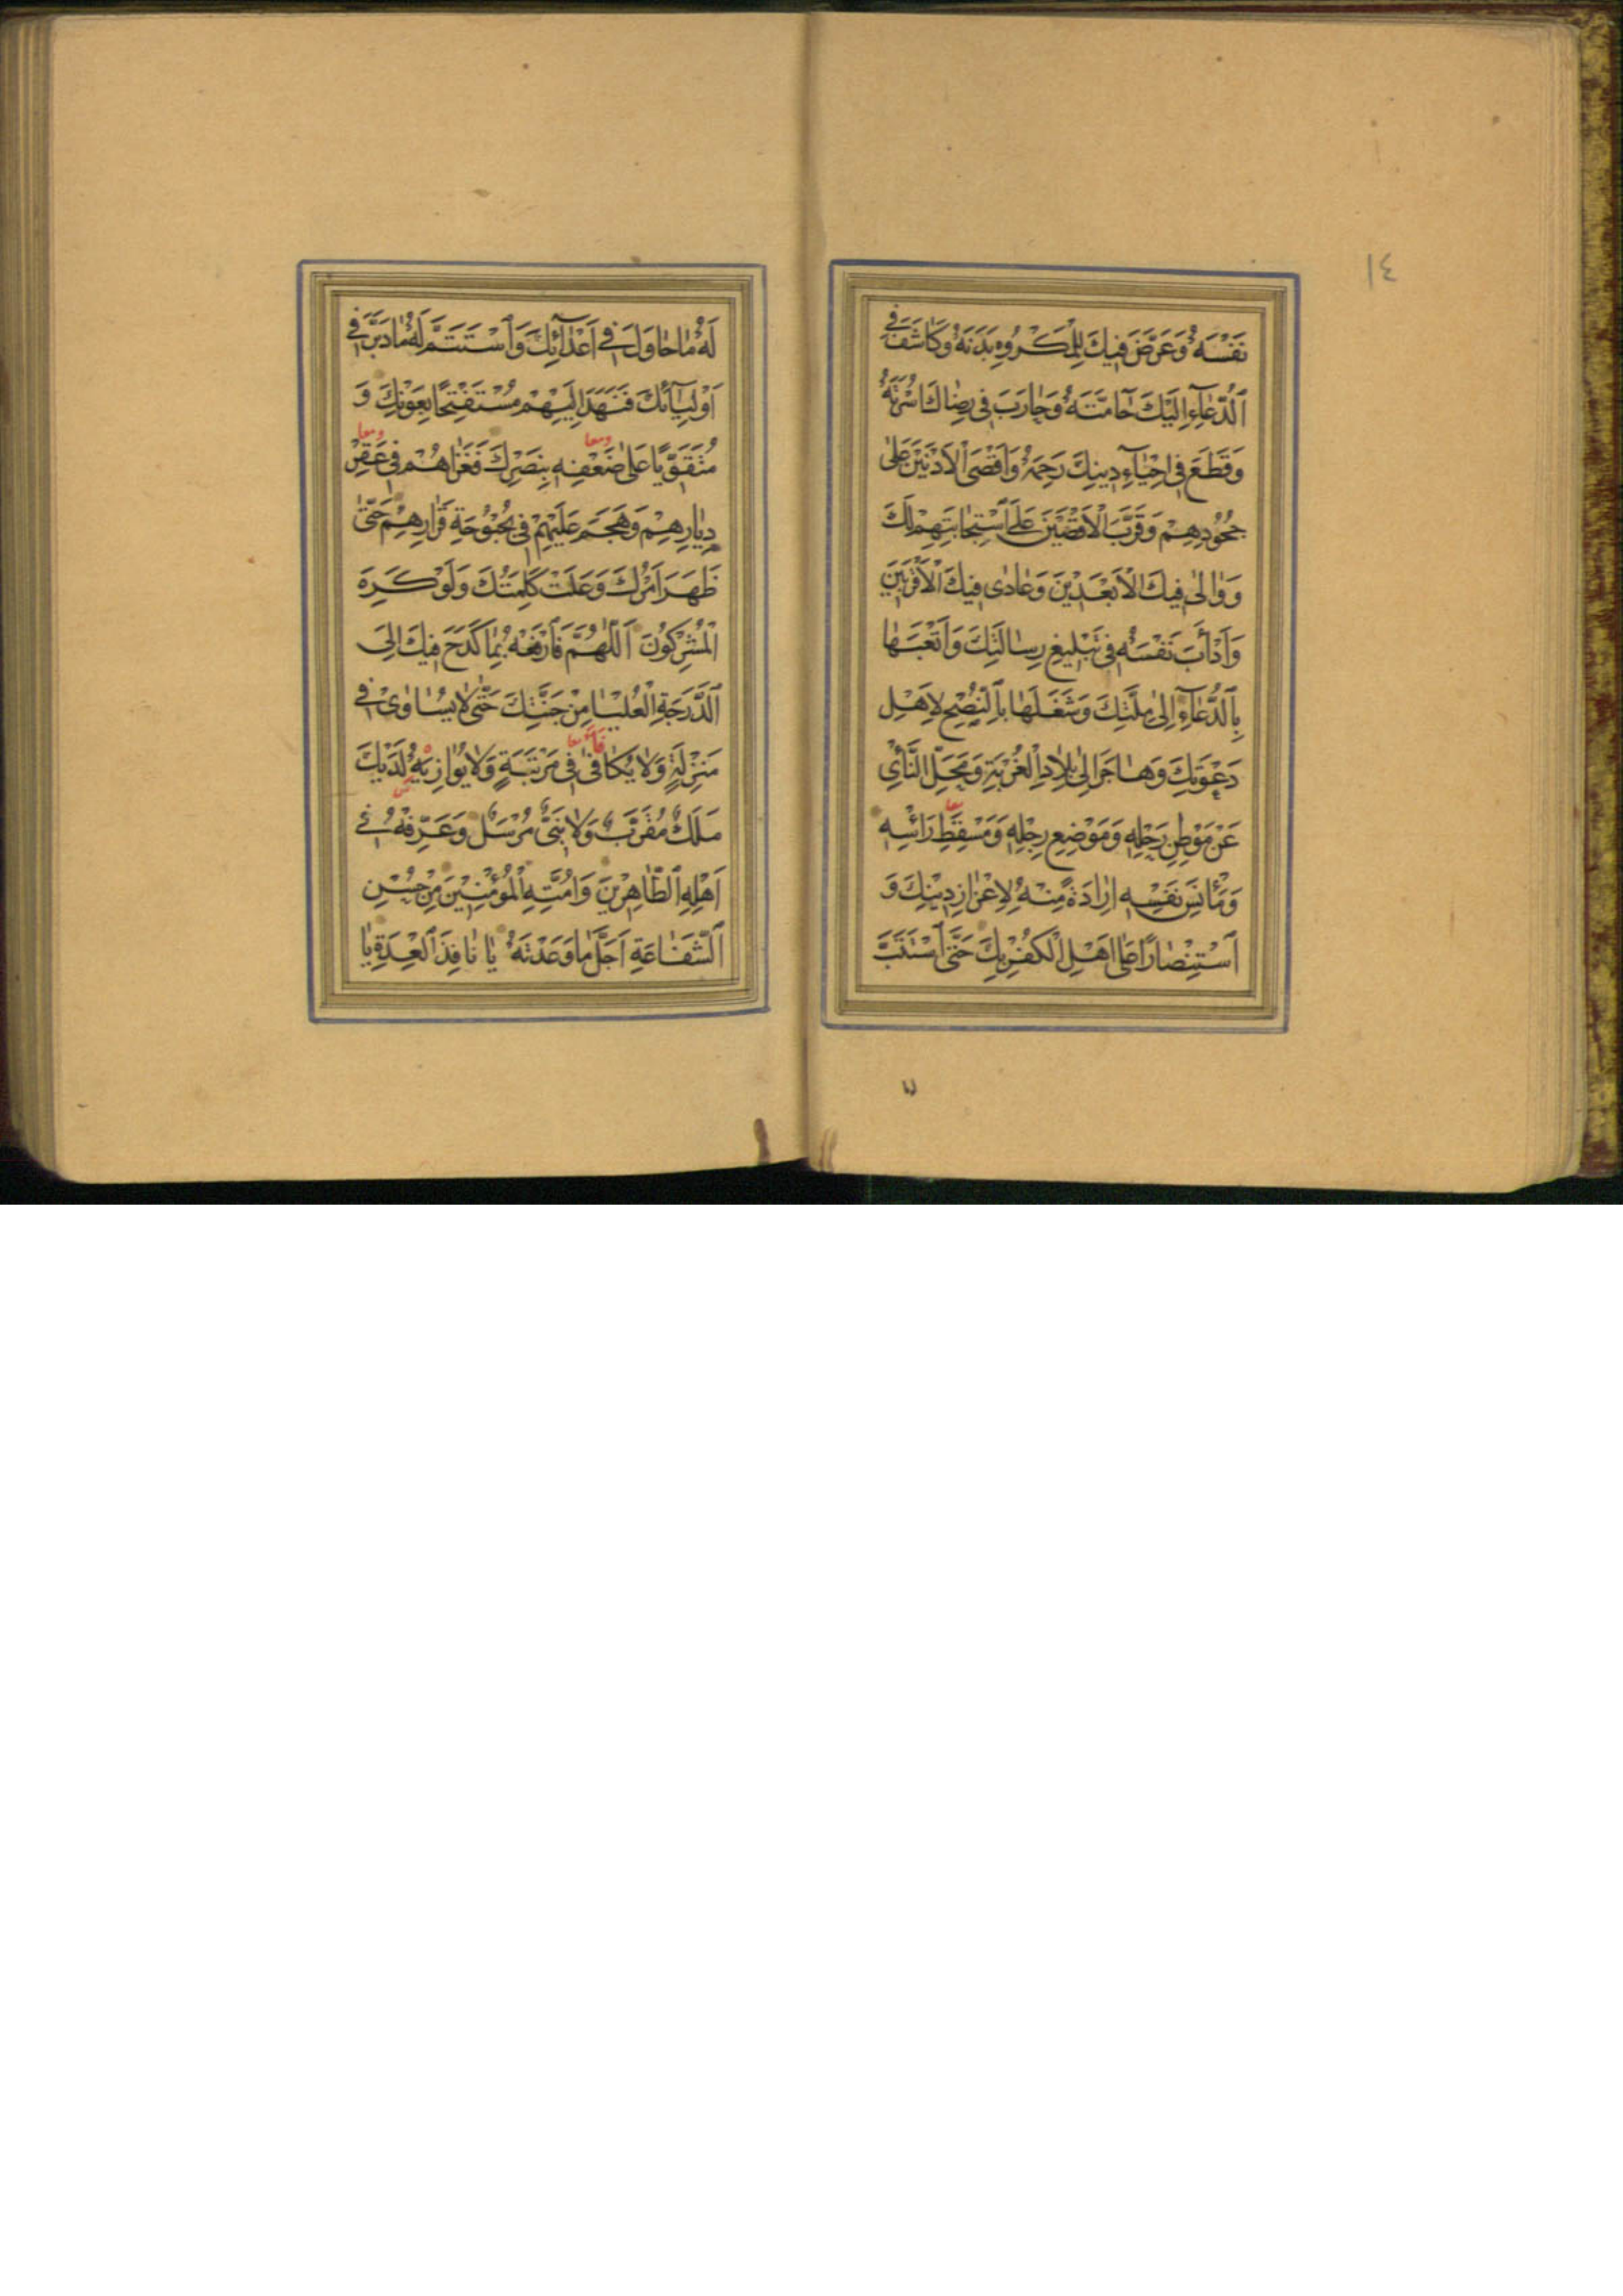 ١٤
نَفْسَهُ وَعَرَّضَ فِيكَ لِلْمَكْرُوهِ بَدَنَهُ وَكَاشَفَ فِي
ٱلدُّعَآءِ اِلَيْكَ حَآمَّتَهُ وَحَارَبَ فِي رِضَاكَ اُسْرَتَهُ
وَقَطَعَ فِي اِحْيَآءِ دِينِكَ رَحِمَهُ وَاَقْصَى ٱلْاَدْنَيْنَ عَلَى
جُحُودِهِمْ وَقَرَّبَ ٱلْاَقْصَيْنَ عَلَى ٱسْتِجَابَتِهِمْ لَكَ
وَوَالَى فِيكَ ٱلْاَبْعَدِيْنَ وَعَادٰى فِيكَ ٱلْاَقْرَبِيْنَ
وَاَدْاَبَ نَفْسَهُ فِي تَبْلِيغِ رِسَالَتِكَ وَاَتْعَبَهَا
بِٱلدُّعَآءِ اِلٰى مِلَّتِكَ وَشَغَلَهَا بِٱلنُّصْحِ لِاَهْلِ
دَعْوَتِكَ وَهَاجَرَ اِلٰى بِلَادِ ٱلْغُرْبَةِ وَمَحَلِّ ٱلنَّأْيِ
عَنْ مَوْطِنِ رَحْلِهِ وَمَوْضِعِ رِجْلِهِ وَمَسْقَطِ رَأْسِهِ
وَمَأْنَسِ نَفْسِهِ اِرَادَةً مِنْهُ لِاِعْزَازِ دِيْنِكَ وَ
ٱسْتِنْصَارًا عَلٰى اَهْلِ ٱلْكُفْرِ بِكَ حَتَّى ٱسْتَتَبَّ
لَهُ مَا حَاوَلَ فِي اَعْدَآئِكَ وَٱسْتَتَمَّ لَهُ مَا دَبَّرَ فِي
اَوْلِيَآئِكَ فَنَهَدَ اِلَيْهِمْ مُسْتَفْتِحًا بِعَوْنِكَ وَ
مُتَقَوِّيًا عَلٰى ضَعْفِهِ بِنَصْرِكَ فَغَزَاهُمْ فِي عُقْرِ
دِيَارِهِمْ وَهَجَمَ عَلَيْهِمْ فِي بُحْبُوحَةِ قَرَارِهِمْ حَتّٰى
ظَهَرَ اَمْرُكَ وَعَلَتْ كَلِمَتُكَ وَلَوْ كَرِهَ
ٱلْمُشْرِكُونَ اَللّٰهُمَّ فَارْفَعْهُ بِمَا كَدَحَ فِيكَ اِلَى
ٱلدَّرَجَةِ ٱلْعُلْيَا مِنْ جَنَّتِكَ حَتّٰى لَا يُسَاوٰى فِي
مَنْزِلَةٍ وَلَا يُكَافَىٰ فِي مَرْتَبَةٍ وَلَا يُوَازِيَهُ لَدَيْكَ
مَلَكٌ مُقَرَّبٌ وَلَا نَبِيٌّ مُرْسَلٌ وَعَرِّفْهُ فِي
اَهْلِهِ ٱلطَّاهِرِيْنَ وَاُمَّتِهِ ٱلْمُؤْمِنِيْنَ مِنْ حُسْنِ
ٱلشَّفَاعَةِ اَجَلَّ مَا وَعَدْتَهُ يَا نَافِذَ ٱلْعِدَةِ يَا